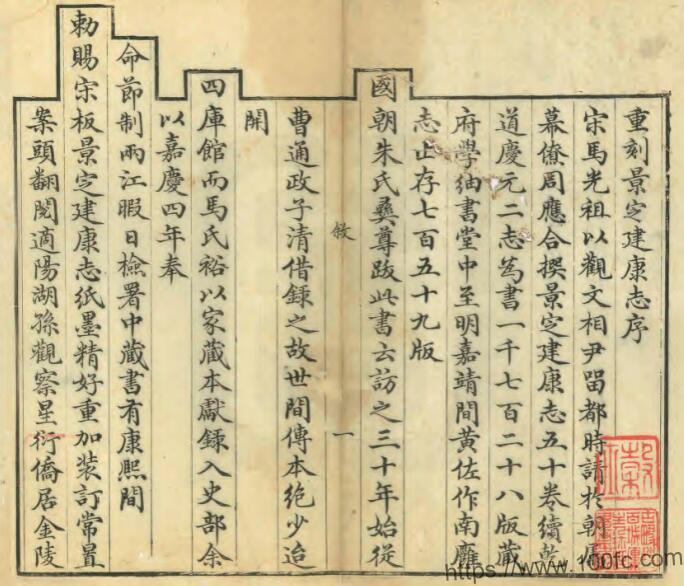 重刻景定建康志序
宋馬光祖以觀文相尹留都時請於朝
幕僚周應合撰景定建康志五十卷續乾
道慶元二志爲書一千七百二十八版藏
府學紬書堂中至明嘉靖間黄佐作南廱
志止存七百五十九版
國朝朱氏彝尊跋此書云訪之三十年始從
曹通政子清借錄之故世間傳本絶少迨
開
四庫館而馬氏裕以家藏本獻錄入史部余
以嘉慶四年奉
命節制兩江暇日檢署中藏書有康熙間
勅賜宋板景定建康志紙墨精好重加装訂常置
案頭翻閱適陽湖孫觀察星衍僑居金陵
敘
一
https://www.100fc.com